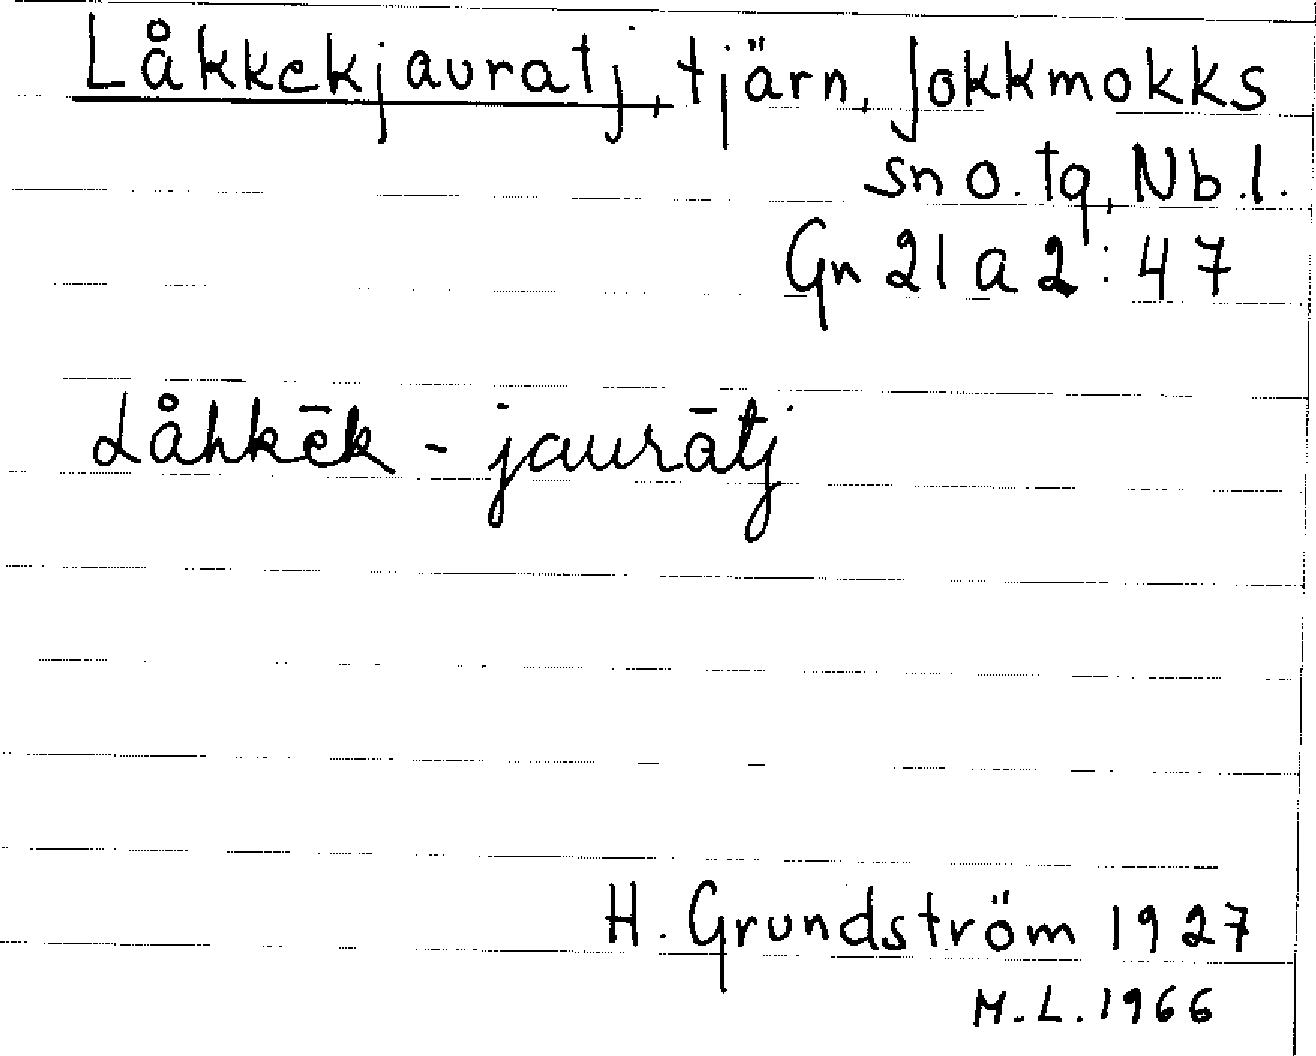 Låkkekjauratj, tjärn, Jokkmokks
sn o. tg, Nb.l.
Gn 21 a 2 : 47
Låhkēk - jaurātj
H. Grundström 1927
M.L. 1966